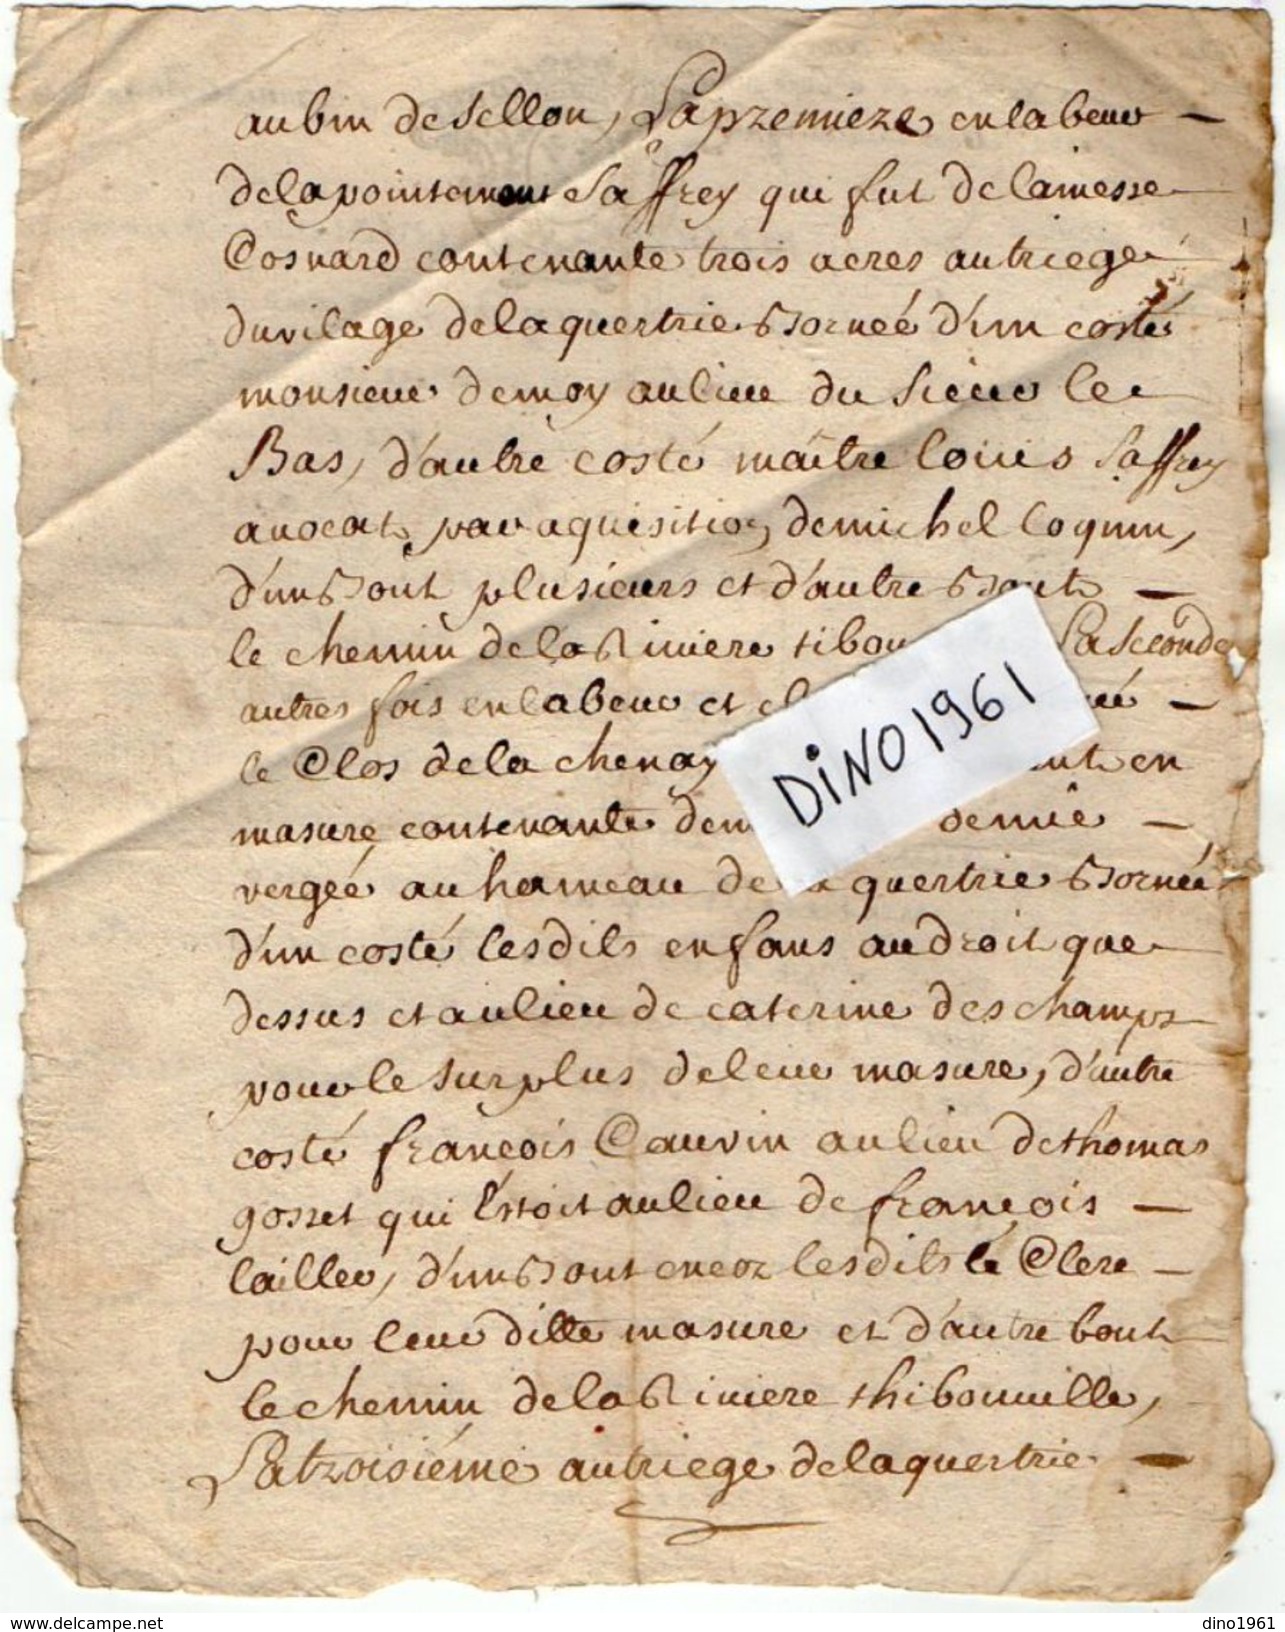 aubin de sellon, La premiere en labeur
de la pointe mont Saffrey qui fut de la messe
Cosnard contenante trois acres au triege
du vilage de la quertrie Bornée d'un costé
monsieur demoy au lieu du sieur le
Bas, d'autre costé maître louis Saffrey
avocat, par aquisition de michel loquin,
d'un Bout plusieurs et d'autre Bout
le chemin de la Riviere La Seconde
autres fois en labeur et
le Clos de la chenay en
masure contenante demie
vergée au hameau de la quertrie Bornée
d'un costé lesdits enfans au droit que
dessus et au lieu de caterine deschamps
pour le surplus de leur masure, d'autre
costé françois Cauvin au lieu de thomas
gosset qui l'estoit au lieu de françois
lailler, d'un Bout encor lesdits le Clerc
pour leur ditte masure et d'autre bout
le chemin de la Riviere thibouville,
La troisiéme au triege de la quertrie
DiNO1961
www.delcampe.net
dino1961